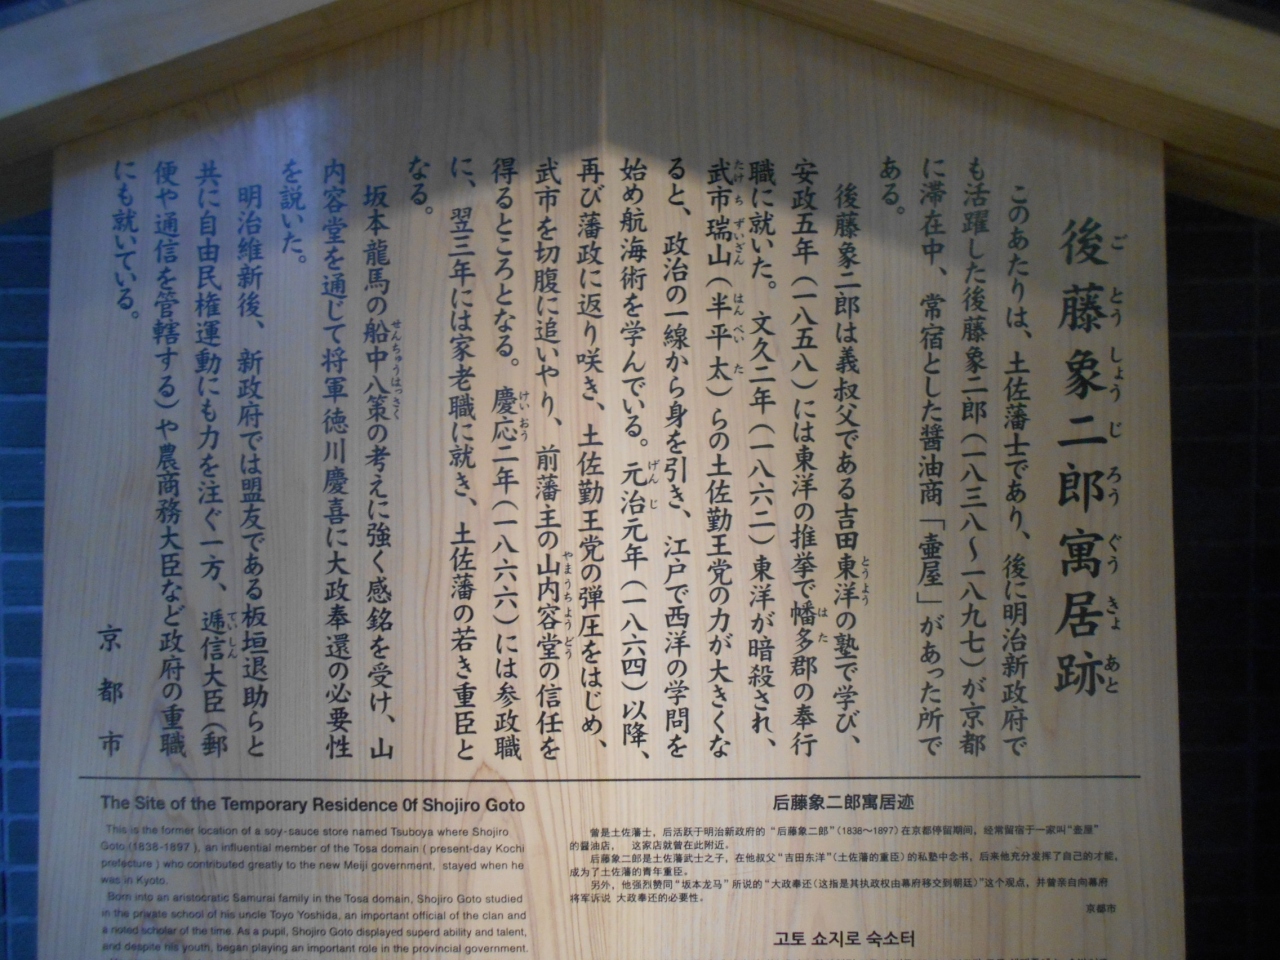 後藤象二郎寓居跡
ごとうしょうじろうぐうきょあと
このあたりは、土佐藩士であり、後に明治新政府で
も活躍した後藤象二郎(一八三八〜一八九七)が京都
に滞在中、常宿とした醤油商「壷屋」があった所で
ある。
後藤象二郎は義叔父である吉田東洋の塾で学び、
とうよう
安政五年(一八五八)には東洋の推挙で幡多郡の奉行
はた
職に就いた。文久二年(一八六二)東洋が暗殺され、
武市瑞山(半平太)らの土佐勤王党の力が大きくな
たけちずいざん はんぺいた
ると、政治の一線から身を引き、江戸で西洋の学問を
始め航海術を学んでいる。元治元年(一八六四)以降、
げんじ
再び藩政に返り咲き、土佐勤王党の弾圧をはじめ、
武市を切腹に追いやり、前藩主の山内容堂の信任を
やまうちようどう
得るところとなる。慶応二年(一八六六)には参政職
けいおう
に、翌三年には家老職に就き、土佐藩の若き重臣と
なる。
坂本龍馬の船中八策の考えに強く感銘を受け、山
せんちゅうはっさく
内容堂を通じて将軍徳川慶喜に大政奉還の必要性
を説いた。
明治維新後、新政府では盟友である板垣退助らと
共に自由民権運動にも力を注ぐ一方、逓信大臣(郵
ていしん
便や通信を管轄する)や農商務大臣など政府の重職
にも就いている。
京都市
The Site of the Temporary Residence Of Shojiro Goto
This is the former location of a soy-sauce store named Tsuboya where Shojiro
Goto (1838-1897 ), an influential member of the Tosa domain ( present-day Kochi
prefecture ) who contributed greatly to the new Meiji government, stayed when he
was in Kyoto.
Born into an aristocratic Samurai family in the Tosa domain, Shojiro Goto studied
in the private school of his uncle Toyo Yoshida, an important official of the clan and
a noted scholar of the time. As a pupil, Shojiro Goto displayed superd ability and talent,
and despite his youth, began playing an important role in the provincial government.
后藤象二郎寓居迹
曾是土佐藩士，后活跃于明治新政府的 “后藤象二郎”（1838～1897）在京都停留期间，经常留宿于一家叫“壶屋”
的酱油店， 这家店就曾在此附近。
后藤象二郎是土佐藩武士之子，在他叔父“吉田东洋”（土佐藩的重臣）的私塾中念书，后来他充分发挥了自己的才能，
成为了土佐藩的青年重臣。
另外，他强烈赞同“坂本龙马”所说的“大政奉还（这指是其执政权由幕府移交到朝廷）”这个观点，并曾亲自向幕府
将军诉说 大政奉还的必要性。
京都市
고토 쇼지로 숙소터